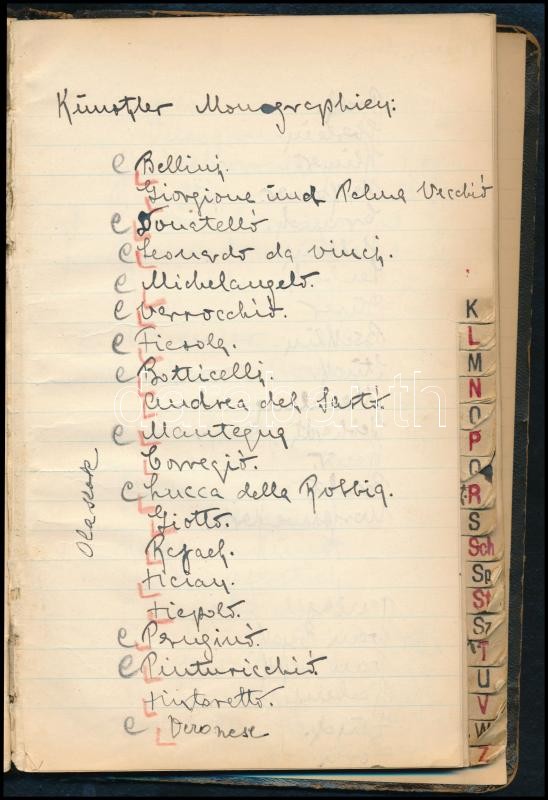 Künstler Monographien:
C Bellini.
Giorgione und Palma Vecchio
C Donatello
C Leonardo da Vinci.
C Michelangelo.
C Verrocchio.
C Fiesole.
C Botticelli.
Andrea del Sarto.
C Mantegna
Corregio.
C Lucca della Robbia.
Giotto.
Rafael.
Tician.
Tiepolo.
C Perugino.
C Pinturicchio.
Tintoretto.
C Veronese
Olaszok
K
L
M
N
O
P
Q
R
S
Sch
Sp
St
Sz
T
U
V
W
Z